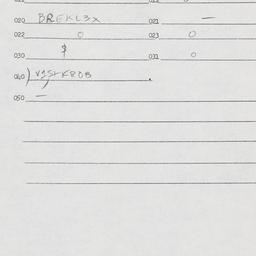 020 BREKL3X 021 —
022 0 023 0
030 $ 031 0
040) V1StKROB .
050 —